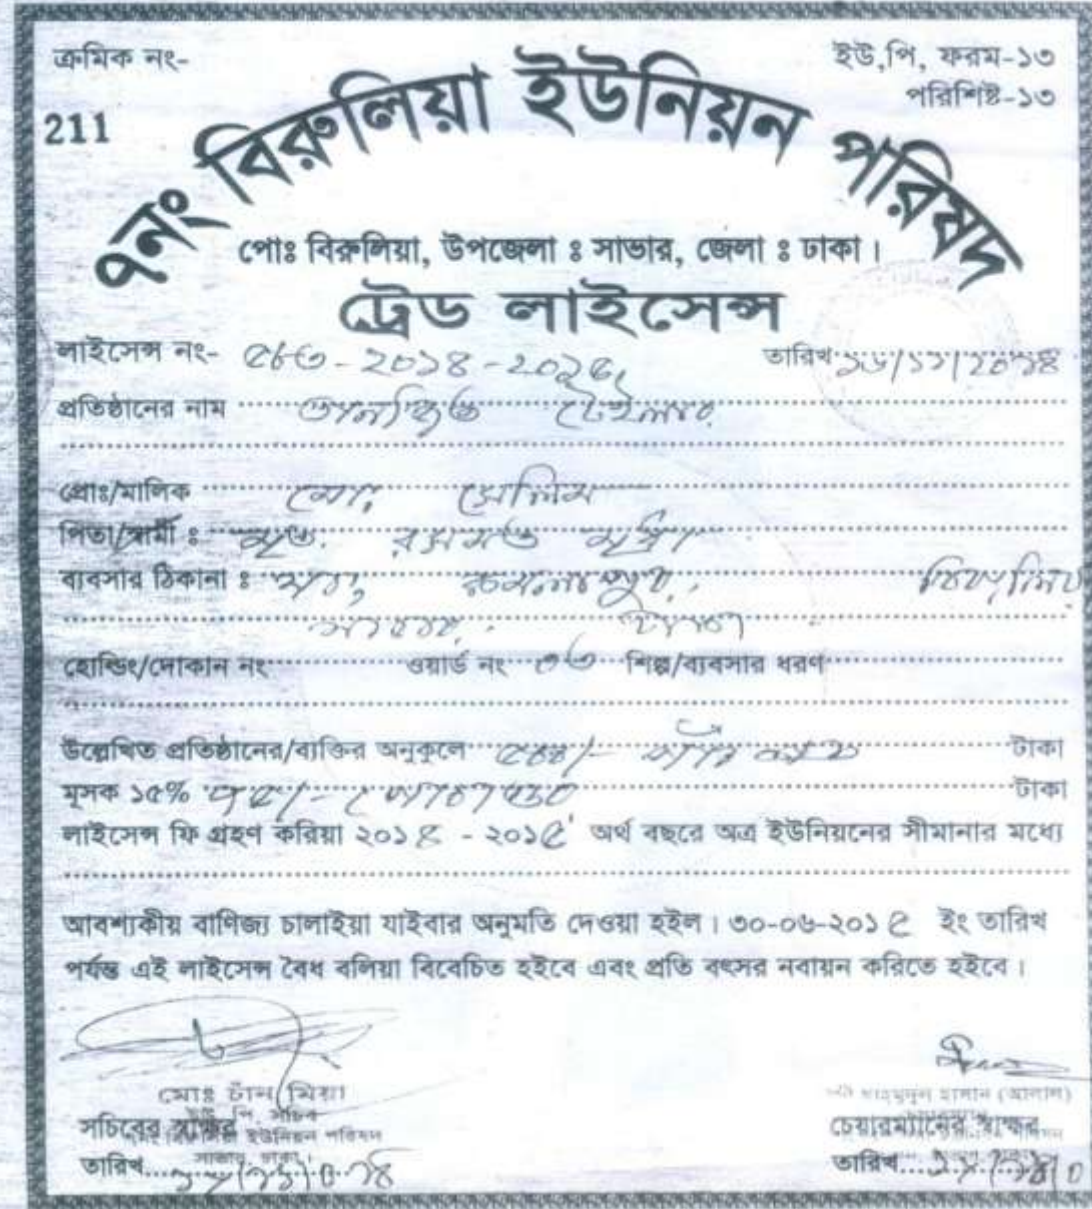 ক্রমিক নং-
211
ইউ,পি, ফরম-১৩
পরিশিষ্ট-১৩
৭নং বিরুলিয়া ইউনিয়ন পরিষদ
পোঃ বিরুলিয়া, উপজেলা ঃ সাভার, জেলা ঃ ঢাকা।
ট্রেড লাইসেন্স
লাইসেন্স নং- ৫৮৩-২০১৪-২০১৫
তারিখ ১৬/১১/২০১৪
প্রতিষ্ঠানের নাম টেইলার
প্রোঃ/মালিক মোঃ সেলিম
পিতা/স্বামী ঃ মৃত
ব্যবসার ঠিকানা ঃ কমলাপুর, বিরুলিয়া
সাভার, ঢাকা
হোল্ডিং/দোকান নং ওয়ার্ড নং ০৬ শিল্প/ব্যবসার ধরণ
উল্লেখিত প্রতিষ্ঠানের/ব্যক্তির অনুকূলে ৫০০/- টাকা
মূসক ১৫% ৭৫/- টাকা
লাইসেন্স ফি গ্রহণ করিয়া ২০১৪ - ২০১৫ অর্থ বছরে অত্র ইউনিয়নের সীমানার মধ্যে
আবশ্যকীয় বাণিজ্য চালাইয়া যাইবার অনুমতি দেওয়া হইল। ৩০-০৬-২০১৫ ইং তারিখ
পর্যন্ত এই লাইসেন্স বৈধ বলিয়া বিবেচিত হইবে এবং প্রতি বৎসর নবায়ন করিতে হইবে।
মোঃ চাঁন মিয়া
ইউ. পি. সচিব
সচিবের স্বাক্ষর
বিরুলিয়া ইউনিয়ন পরিষদ
সাভার, ঢাকা।
তারিখ
চেয়ারম্যানের স্বাক্ষর
তারিখ